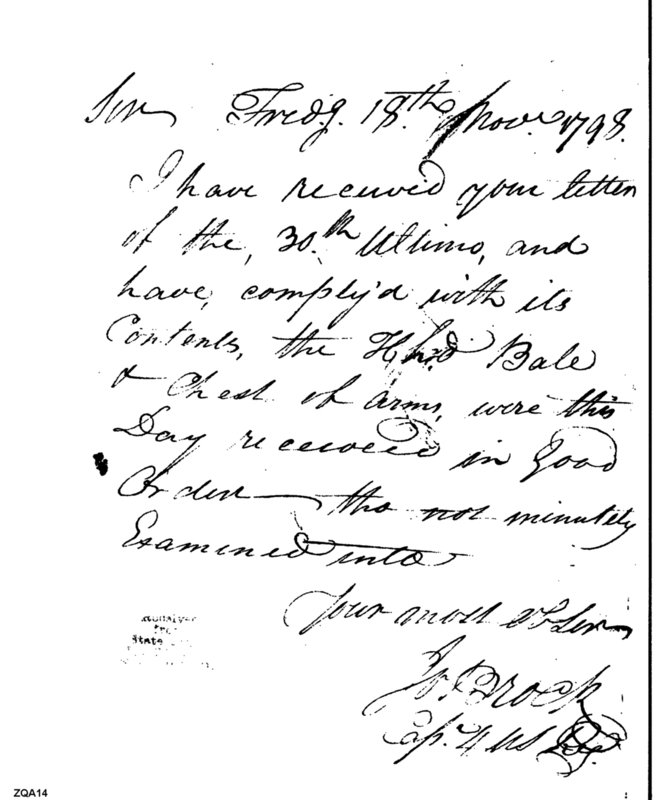 Sir Fredg. 18.th Novr. 1798.
I have received your letter
of the, 30.th Ultimo, and
have, comply'd with its
Contents, the Hhd Bale
& Chest of arms, were this
Day received in Good
Order — tho not minutely
Examined into
your most Ob Ser
Jo. Brock
Cap. 4 US
State
ZQA14